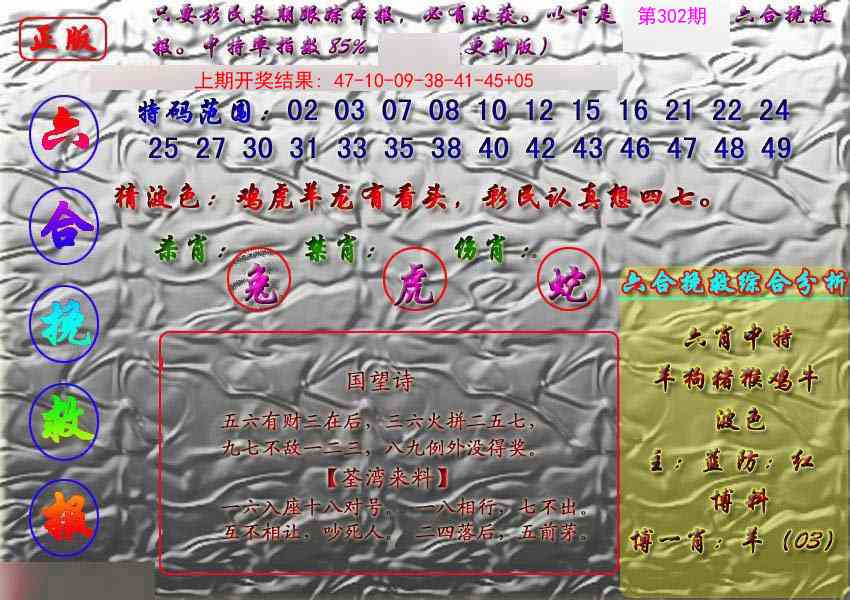 正版
只要彩民长期跟踪本报，必有收获。以下是 第302期 六合挽救
报。中特率指数85% 更新版）
上期开奖结果：47-10-09-38-41-45+05
特码范围：02 03 07 08 10 12 15 16 21 22 24
25 27 30 31 33 35 38 40 42 43 46 47 48 49
猜波色：鸡虎羊龙有看头，彩民认真想四七。
杀肖： 禁肖： 伤肖：
兔 虎 蛇
六
合
挽
救
报
国望诗
五六有财三在后，三六火拼二五七，
九七不敌一二三，八九例外没得奖。
【荃湾来料】
一六入座十八对号。 一八相行，七不出。
互不相让，吵死人。 二四落后，五前茅。
六合挽救综合分析
六肖中特
羊狗猪猴鸡牛
波色
主：蓝防：红
博料
博一肖：羊（03）